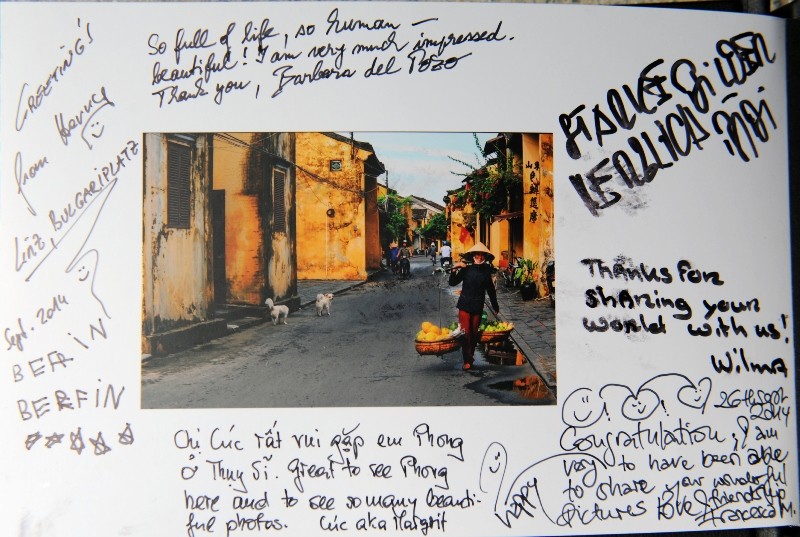 So full of life, so human –
beautiful! I am very much impressed.
Thank you, Barbara del Pozo
GREETINGS
from
LINZ, BULGARIPLATZ
Sept. 2014
BERFIN
BERFIN
STARKE BILDER
Thanks for
sharing your
world with us!
Wilma
26th Sept
2014
Congratulation, I am
very to have been able
to share your wonderful
pictures love & friendship
Francesca M.
happy
Chị Cúc rất vui gặp em Phong
ở Thụy Sĩ. Great to see Phong
here and to see so many beauti-
ful photos. Cúc aka Margrit